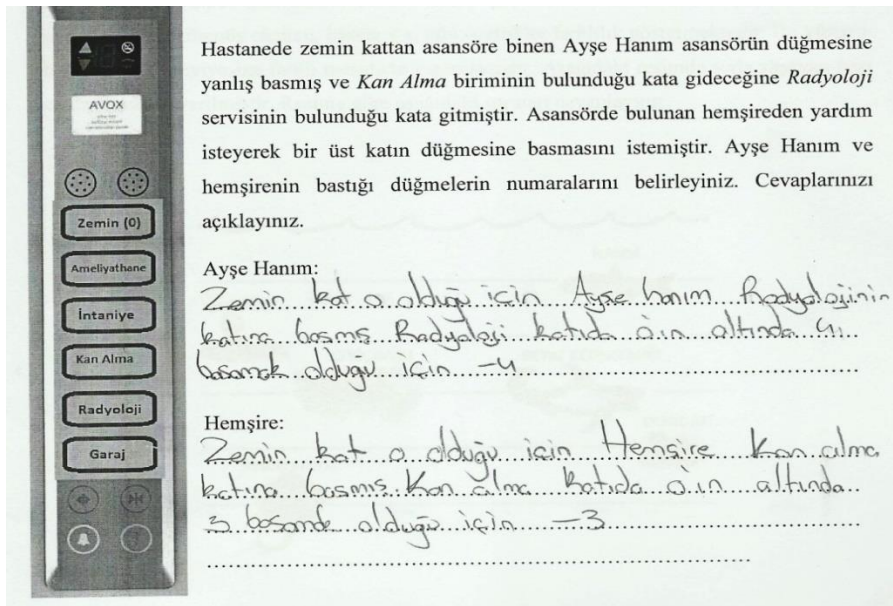 AVOX
Zemin (0)
Ameliyathane
İntaniye
Kan Alma
Radyoloji
Garaj
Hastanede zemin kattan asansöre binen Ayşe Hanım asansörün düğmesine
yanlış basmış ve Kan Alma biriminin bulunduğu kata gideceğine Radyoloji
servisinin bulunduğu kata gitmiştir. Asansörde bulunan hemşireden yardım
isteyerek bir üst katın düğmesine basmasını istemiştir. Ayşe Hanım ve
hemşirenin bastığı düğmelerin numaralarını belirleyiniz. Cevaplarınızı
açıklayınız.
Ayşe Hanım:
Zemin kat 0 olduğu için Ayşe hanım Radyolojinin
katına basmış Radyoloji katıda 0'ın altında 4.
basamak olduğu için -4
Hemşire:
Zemin kat 0 olduğu için Hemşire Kan alma
katına basmış. Kan alma katıda 0'ın altında
3 basamak olduğu için -3